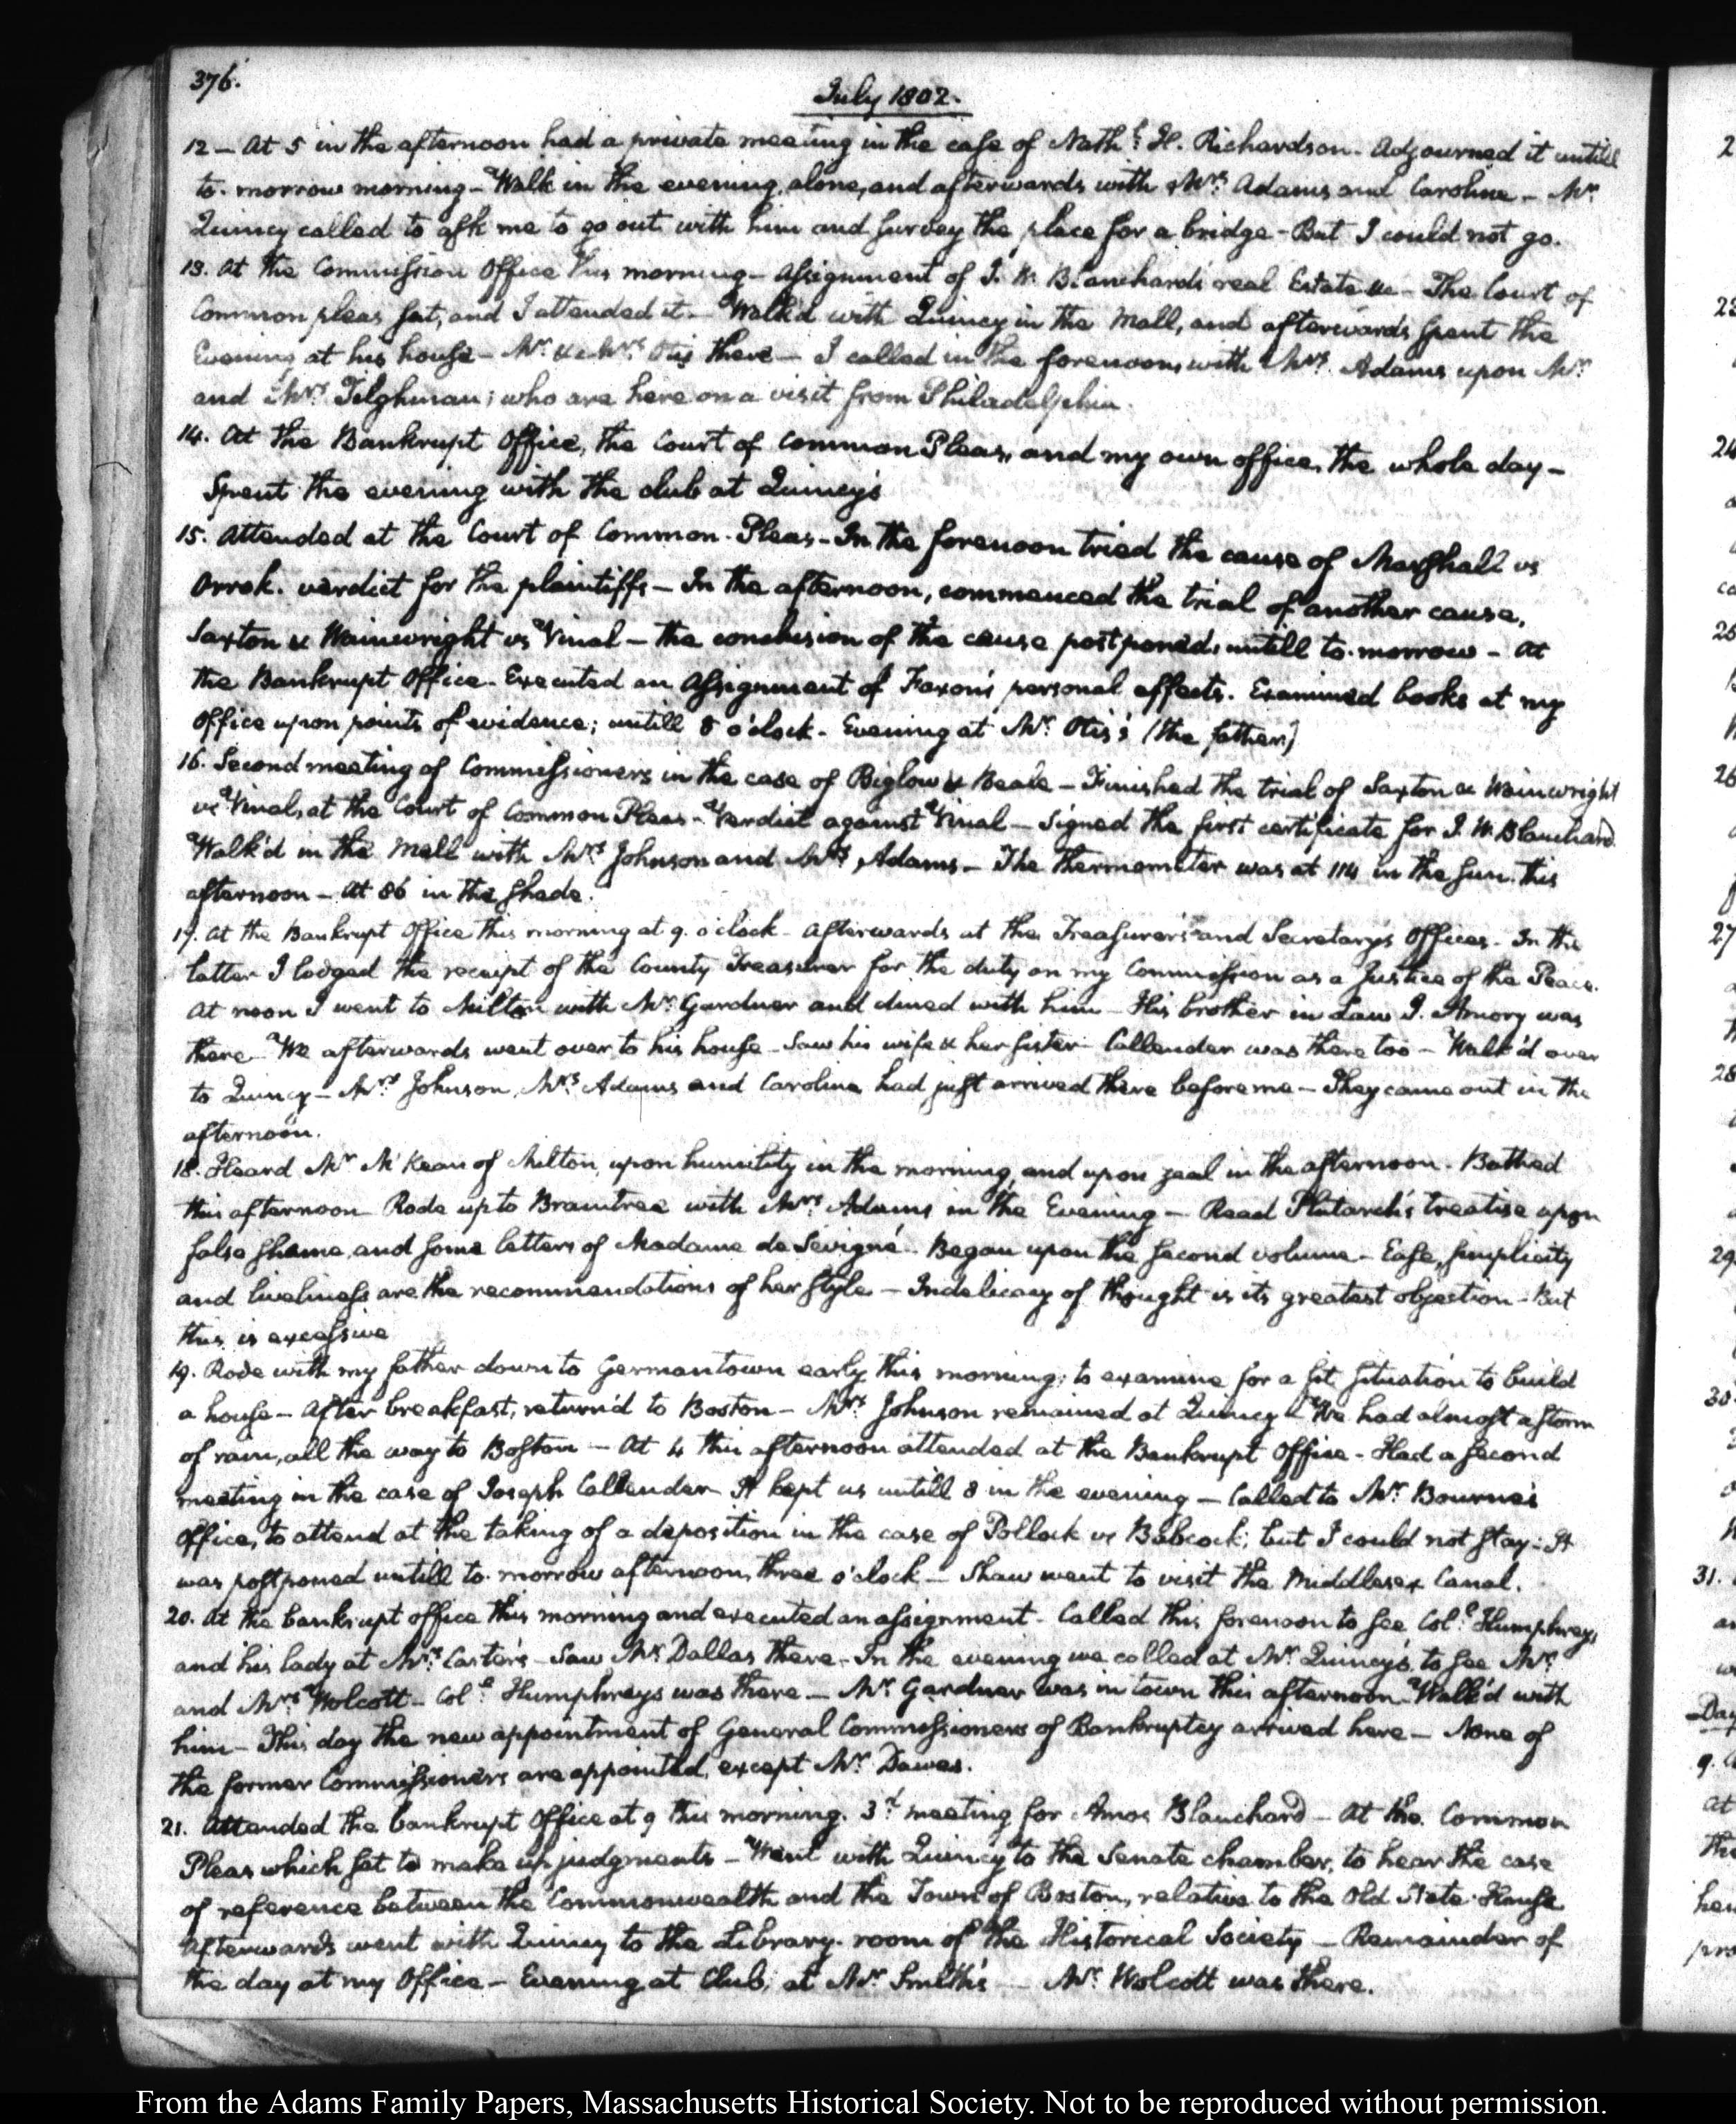 376.
July 1802.
12 — At 5 in the afternoon had a private meeting in the case of Nathl. H. Richardson. Adjourned it untill
to-morrow morning — Walk in the evening, alone, and afterwards with Mrs. Adams and Caroline — Mr.
Quincy called to ask me to go out with him and survey the place for a bridge — But I could not go.
13. At the Commission Office this morning — Assignment of J. W. Blanchard's real Estate &c — The Court of
Common pleas sat, and I attended it — Walk'd with Quincy in the Mall, and afterwards spent the
Evening at his house — Mr. & Mrs. Otis there — I called in the forenoon with Mrs. Adams upon Mr.
and Mrs. Tilghman; who are here on a visit from Philadelphia.
14. At the Bankrupt Office, the Court of Common Pleas, and my own office, the whole day —
Spent the evening with the club at Quincy's
15. Attended at the Court of Common-Pleas — In the forenoon tried the cause of Marshall vs
Orrok. verdict for the plaintiffs — In the afternoon, commenced the trial of another cause,
Saxton & Wainwright vs Vinal — the conclusion of the cause postponed, untill to-morrow — At
the Bankrupt Office. Executed an Assignment of Faxon's personal effects. Examined books at my
Office upon points of evidence; untill 8 o'clock. Evening at Mr. Otis's (the father)
16. Second meeting of Commissioners in the case of Biglow & Beale — Finished the trial of Saxton & Wainwright
vs Vinal, at the Court of Common Pleas — Verdict against Vinal — Signed the first certificate for J. W. Blanchard
Walk'd in the Mall with Mrs. Johnson and Mrs. Adams — The thermometer was at 114 in the sun this
afternoon — At 86 in the shade.
17. At the Bankrupt Office this morning at 9. o'clock — Afterwards at the Treasurer's and Secretary's Offices — In the
latter I lodged the receipt of the County Treasurer for the duty on my Commission as a Justice of the Peace.
At noon I went to Milton with Mr. Gardner and dined with him — His brother in Law J. Amory was
there — We afterwards went over to his house — Saw his wife & her sister — Callender was there too — Walk'd over
to Quincy — Mrs. Johnson, Mrs. Adams and Caroline had just arrived there before me — They came out in the
afternoon.
18. Heard Mr. McKean of Milton, upon humility in the morning, and upon zeal in the afternoon. Bathed
this afternoon Rode up to Braintree with Mrs. Adams in the Evening — Read Plutarch's treatise upon
false shame, and some letters of Madame de Sevigné. Began upon the second volume — Ease, simplicity
and liveliness are the recommendations of her style — Indelicacy of thought is its greatest objection — But
this is excessive
19. Rode with my father down to Germantown early this morning; to examine for a fit situation to build
a house — After breakfast, return'd to Boston — Mrs. Johnson remained at Quincy — We had almost a storm
of rain, all the way to Boston — At 4 this afternoon attended at the Bankrupt Office. Had a second
meeting in the case of Joseph Callender It kept us untill 8 in the evening — Called to Mr. Bourne's
Office, to attend at the taking of a deposition in the case of Pollock vs Babcock; but I could not stay: It
was postponed untill to-morrow afternoon, three o'clock — Shaw went to visit the Middlesex Canal.
20. At the bankrupt office this morning and executed an assignment. Called this forenoon to see Coll. Humphreys
and his lady at Mrs. Carter's — Saw Mr. Dallas there — In the evening we called at Mr. Quincy's to see Mr.
and Mrs. Wolcott — Coll. Humphreys was there — Mr. Gardner was in town this afternoon Walk'd with
him — This day the new appointment of General Commissioners of Bankruptcy arrived here — None of
the former Commissioners are appointed, except Mr. Dawes.
21. Attended the bankrupt Office at 9 this morning. 3d. meeting for Amos Blanchard — At the Common
Pleas which sat to make up judgments — Went with Quincy to the Senate chamber, to hear the case
of reference between the Commonwealth and the Town of Boston, relative to the Old State-House
Afterwards went with Quincy to the Library-room of the Historical Society — Remainder of
the day at my Office — Evening at Club, at Mr. Smith's — Mr. Wolcott was there.
From the Adams Family Papers, Massachusetts Historical Society. Not to be reproduced without permission.